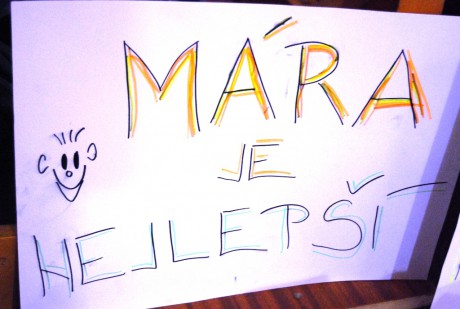 MÁRA
JE
NEJLEPŠÍ